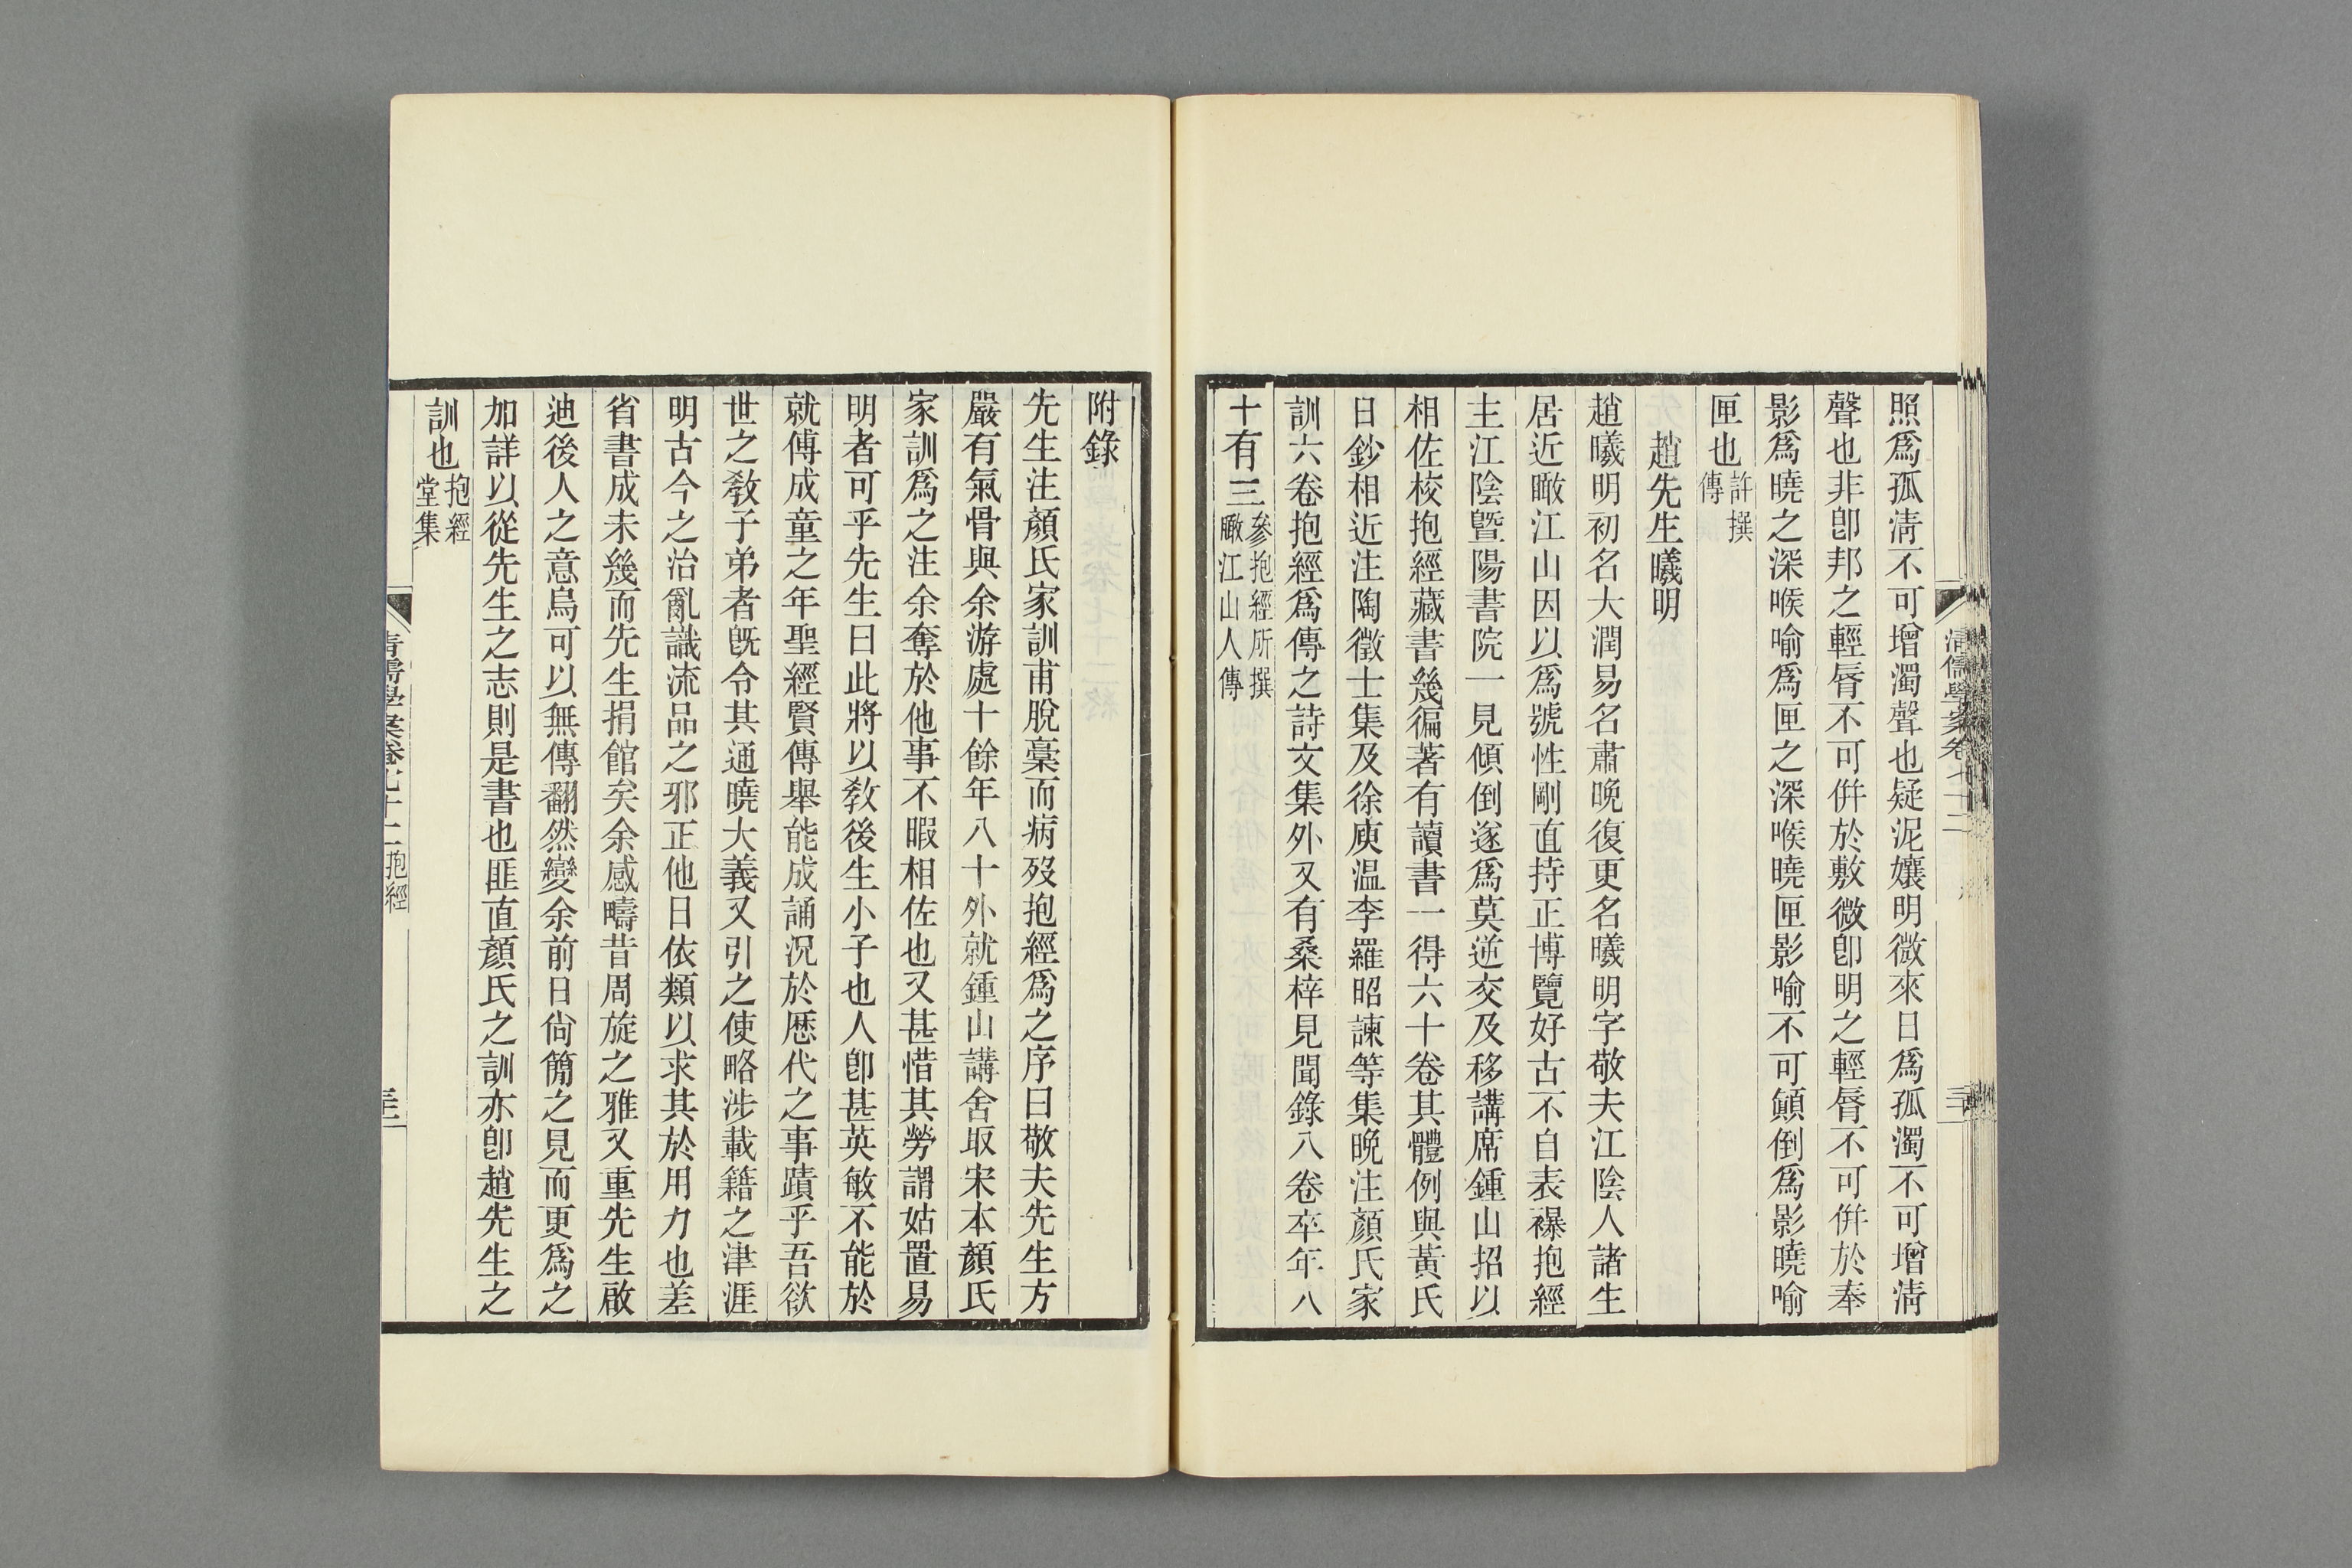 照爲孤淸不可增濁聲也疑泥孃明微來日爲孤濁不可增淸
聲也非卽邦之輕脣不可倂於敷微卽明之輕脣不可倂於奉
影爲曉之深喉喻爲匣之深喉曉匣影喻不可顚倒爲影曉喻
匣也許撰
傳
趙先生曦明
趙曦明初名大潤易名肅晚復更名曦明字敬夫江陰人諸生
居近瞰江山因以爲號性剛直持正博覽好古不自表襮抱經
主江陰曁陽書院一見傾倒遂爲莫逆交及移講席鍾山招以
相佐校抱經藏書幾徧著有讀書一得六十卷其體例與黃氏
日鈔相近注陶徵士集及徐庾温李羅昭諫等集晚注顏氏家
訓六卷抱經爲傳之詩文集外又有桑梓見聞錄八卷卒年八
十有三參抱經所撰
瞰江山人傳
淸儒學案卷七十二
附錄
先生注顏氏家訓甫脫稾而病歿抱經爲之序曰敬夫先生方
嚴有氣骨與余游處十餘年八十外就鍾山講舍取宋本顏氏
家訓爲之注余奪於他事不暇相佐也又甚惜其勞謂姑置易
明者可乎先生曰此將以敎後生小子也人卽甚英敏不能於
就傅成童之年聖經賢傳舉能成誦況於歷代之事蹟乎吾欲
世之敎子弟者旣令其通曉大義又引之使略涉載籍之津涯
明古今之治亂識流品之邪正他日依類以求其於用力也差
省書成未幾而先生捐館矣余感疇昔周旋之雅又重先生啟
迪後人之意烏可以無傳翻然變余前日尙簡之見而更爲之
加詳以從先生之志則是書也匪直顏氏之訓亦卽趙先生之
訓也抱經
堂集
淸儒學案卷七十二 抱經